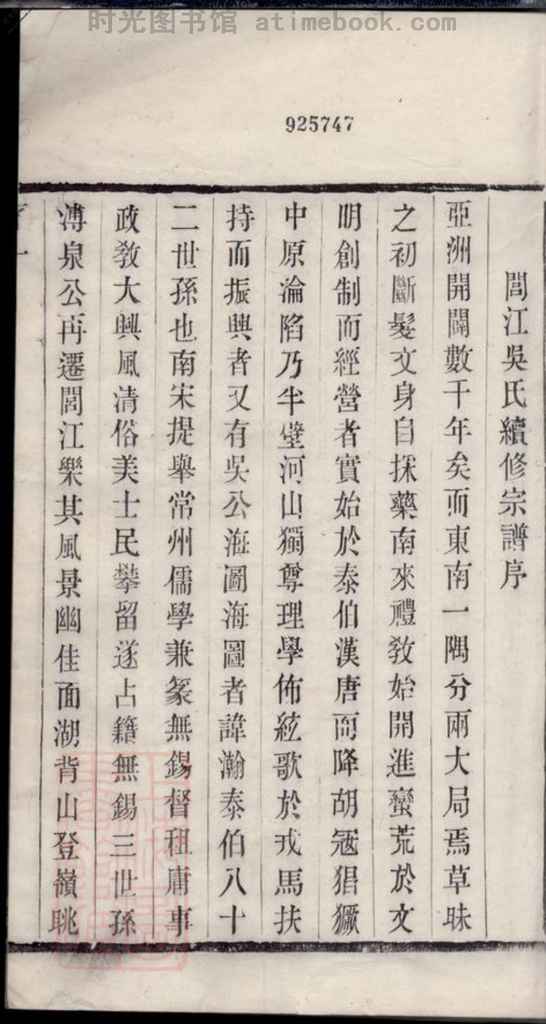 时光图书馆 atimebook.com
925747
閭江吳氏續修宗譜序
亞洲開闢數千年矣而東南一隅分兩大局焉草昧
之初斷髮文身自採藥南來禮敎始開進蠻荒於文
明創制而經營者實始於泰伯漢唐而降胡冦猖獗
中原淪陷乃半壁河山獨尊理學佈絃歌於戎馬扶
持而振興者又有吳公海圖海圖者諱瀚泰伯八十
二世孫也南宋提舉常州儒學兼篆無錫督租庸事
政敎大興風清俗美士民攀留遂占籍無錫三世孫
溥泉公再遷閭江樂其風景幽佳面湖背山登嶺眺